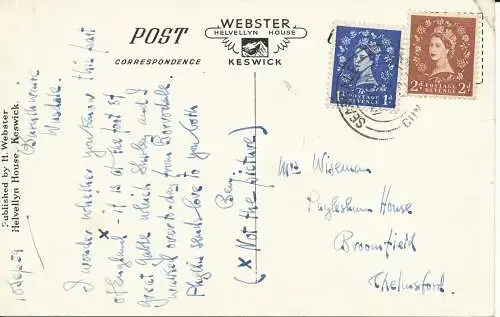 POST
CORRESPONDENCE
WEBSTER
HELVELLYN HOUSE
KESWICK
1D POSTAGE REVENUE 1D
2D POSTAGE REVENUE 2D
CUM
Published by H. Webster
Helvellyn House, Keswick.
Wasdale
10 Sep 59
I wonder whether you know this part
of England x - it is at the foot of
Great Gable which Shirley and I
walked over to-day from Borrowdale
Phyllis sends love to you both
Ben
(x Not the picture)
Mrs Wiseman
House
Broomfield
Chelmsford.